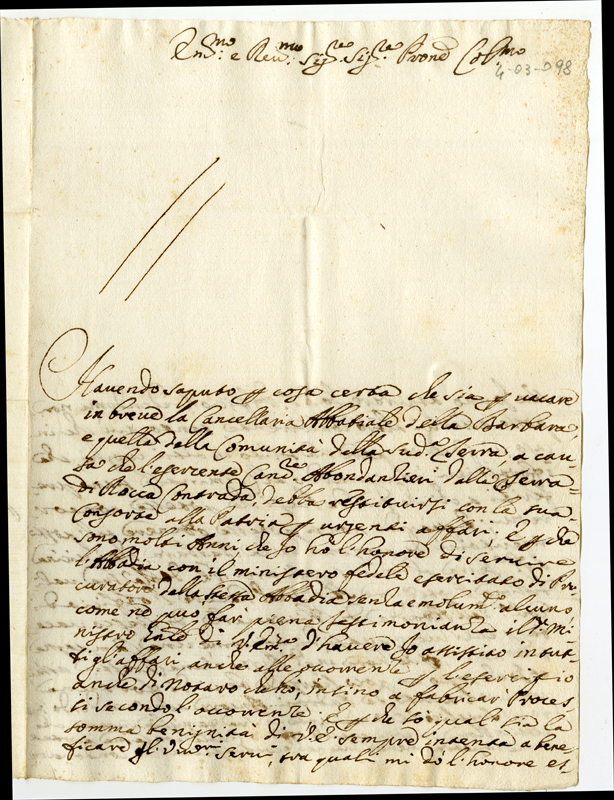 Em.mo e Rev.mo Sig.re Sig.re Pron Col.mo
4-03-098
Havendo saputo p cosa certa che sia p vacare
in breve la Cancellaria Abbatiale della Barbara,
e quella della Comunità della sud.a Serra, a cau-
sa che l'esercente Canc.re Abondantieri dalla Serra
di Rocca Contrada, debba restituirsi con la sua
Consorte alla Patria p urgenti affari, E p che
sono molti Anni, che Io hò l'honore di servire
l'Abbadia con il ministero fedele esercitato di Pro
curatore della stessa Abbadia senza emolum.o alcuno
come ne puo far piena testimonianza il Mi-
nistro di V. Em.a d'havere Io assistito in tut
ti gl'affari, anche alle occorrenze p l'esercitio
anche di Notaro che hò, insino a fabricar Proces
si secondo l'occorrenze. E p che so qual sia la
somma benignità di V.E. sempre intenta a bene
ficare gl'suoi servi, tra quali mi dò l'honore es-